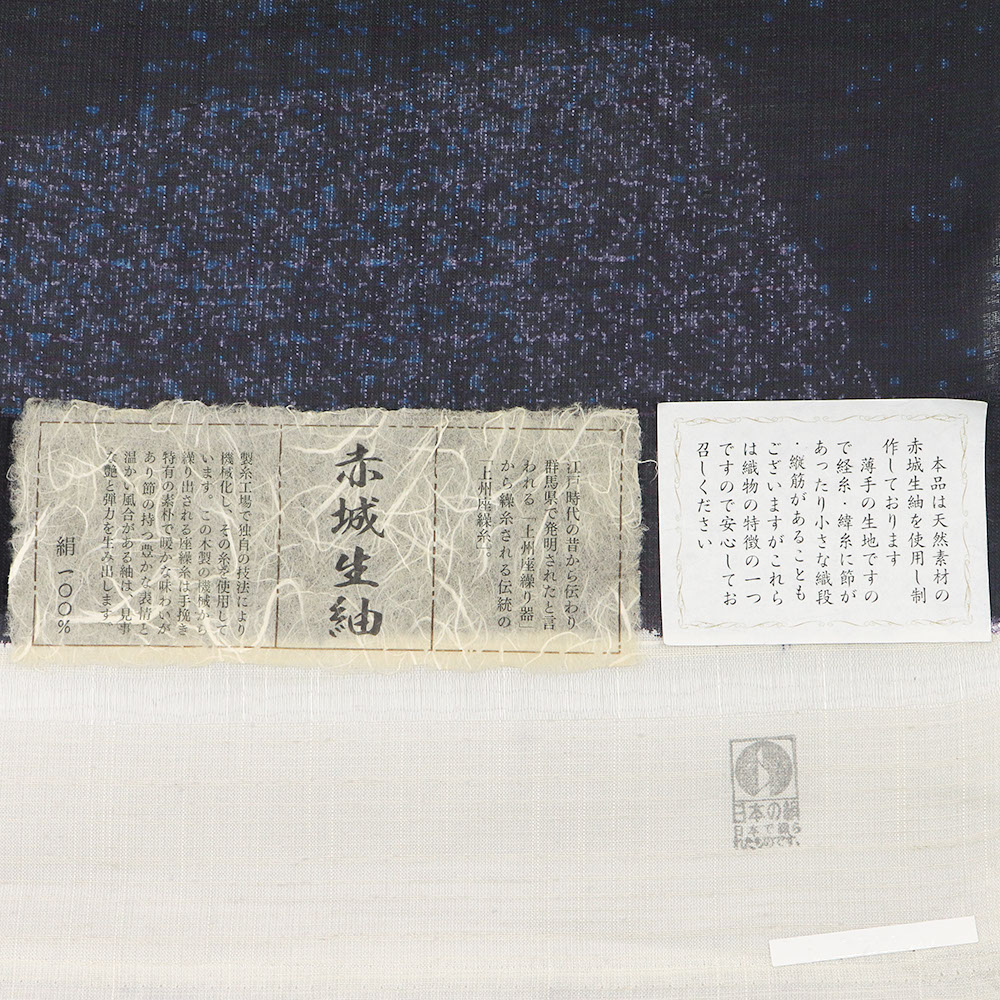 江戸時代の昔から伝わり
群馬県で発明されたと言
われる「上州座繰り器」
から繰糸される伝統の
「上州座繰糸」。
赤城生紬
製糸工場で独自の技法により
機械化し、その糸を使用して
います。この木製の機械から
繰り出される座繰糸は手挽き
特有の素朴で暖かな味わいが
あり節の持つ豊かな表情と
温かい風合がある紬は、見事
な艶と弾力を生み出します
絹 一〇〇%
本品は天然素材の
赤城生紬を使用し制
作しております
薄手の生地ですの
で経糸・緯糸に節が
あったり小さな織段
・縦筋があることも
ございますがこれら
は織物の特徴の一つ
ですので安心してお
召しください
日本の絹
日本で織ら
れたものです。